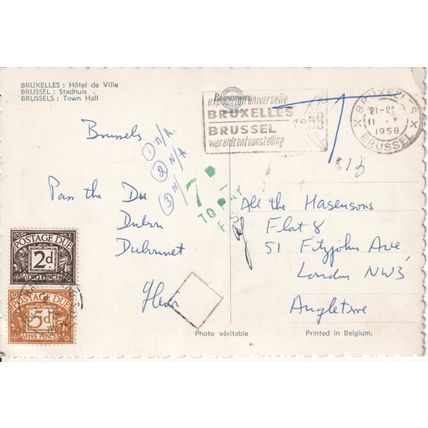 BRUXELLES : Hôtel de Ville
BRUSSEL : Stadhuis
BRUSSELS : Town Hall
exposition universelle
BRUXELLES
BRUSSEL
wereldtentoonstelling
1958
BRUXELLES
21-2
11 V
1958
BRUSSEL
Brussels
① N/A
② N/A
③ N/
7d
TO PAY
Pass the Du
Dubon
Dubonnet
All the Hasensons
Flat 8
51 Fitzjohn Ave
London NW3
Angleterre
POSTAGE DUE
2d
TWO PENCE
POSTAGE DUE
5d
FIVE PENCE
Photo véritable
Printed in Belgium.